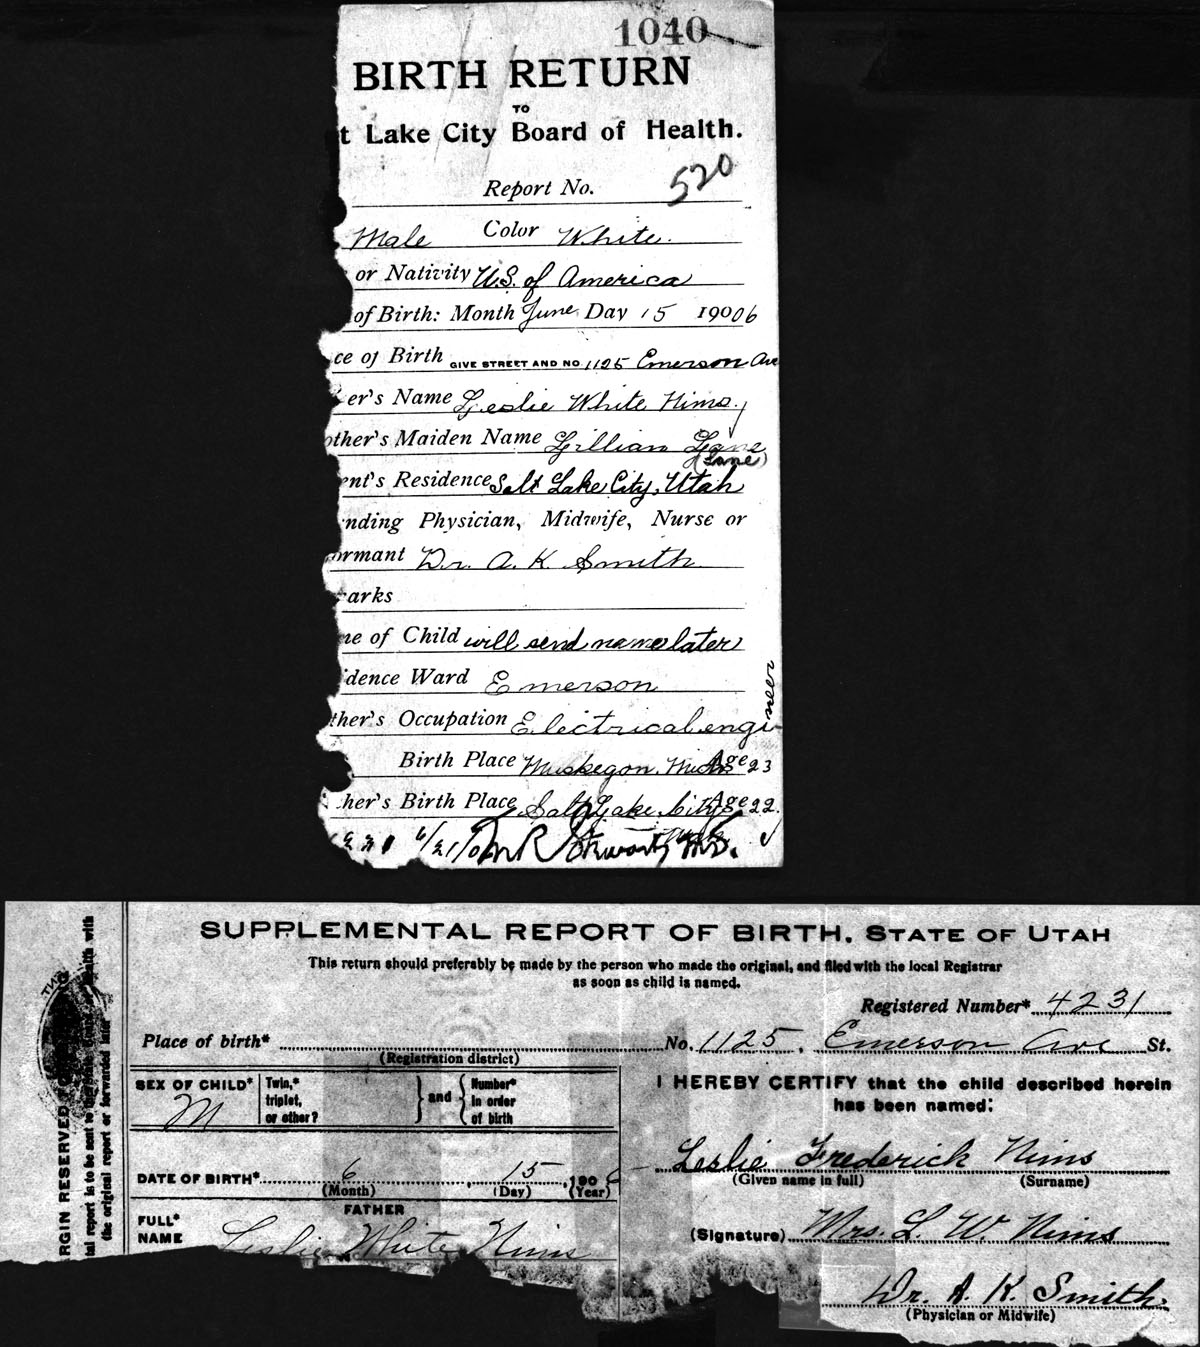 1040
BIRTH RETURN
TO
t Lake City Board of Health.
Report No. 520
Male Color White.
or Nativity U.S. of America
of Birth: Month June Day 15 1906
ce of Birth GIVE STREET AND NO 1125 Emerson Ave
er's Name Leslie White Nims
other's Maiden Name Lillian Lane
(Lane)
ent's Residence Salt Lake City, Utah
nding Physician, Midwife, Nurse or
ormant Dr. A. K. Smith
arks
me of Child will send name later
idence Ward Emerson
ther's Occupation Electrical engineer
Birth Place Muskegon, Mich Age 23
her's Birth Place Salt Lake City Age 22
SUPPLEMENTAL REPORT OF BIRTH. STATE OF UTAH
This return should preferably be made by the person who made the original, and filed with the local Registrar
as soon as child is named.
Registered Number* 4231
Place of birth* No. 1125, Emerson Ave St.
(Registration district)
SEX OF CHILD* M
Twin,*
triplet,
or other?
and
Number*
in order
of birth
I HEREBY CERTIFY that the child described herein
has been named:
Leslie Frederick Nims
(Given name in full) (Surname)
DATE OF BIRTH* 6, 15, 1906
(Month) (Day) (Year)
FATHER
FULL*
NAME
Leslie White Nims
(Signature) Mrs. L. W. Nims
Dr. A. K. Smith.
(Physician or Midwife)
RGIN RESERVED
tal report is to be sent to
(the original report or forwarded later